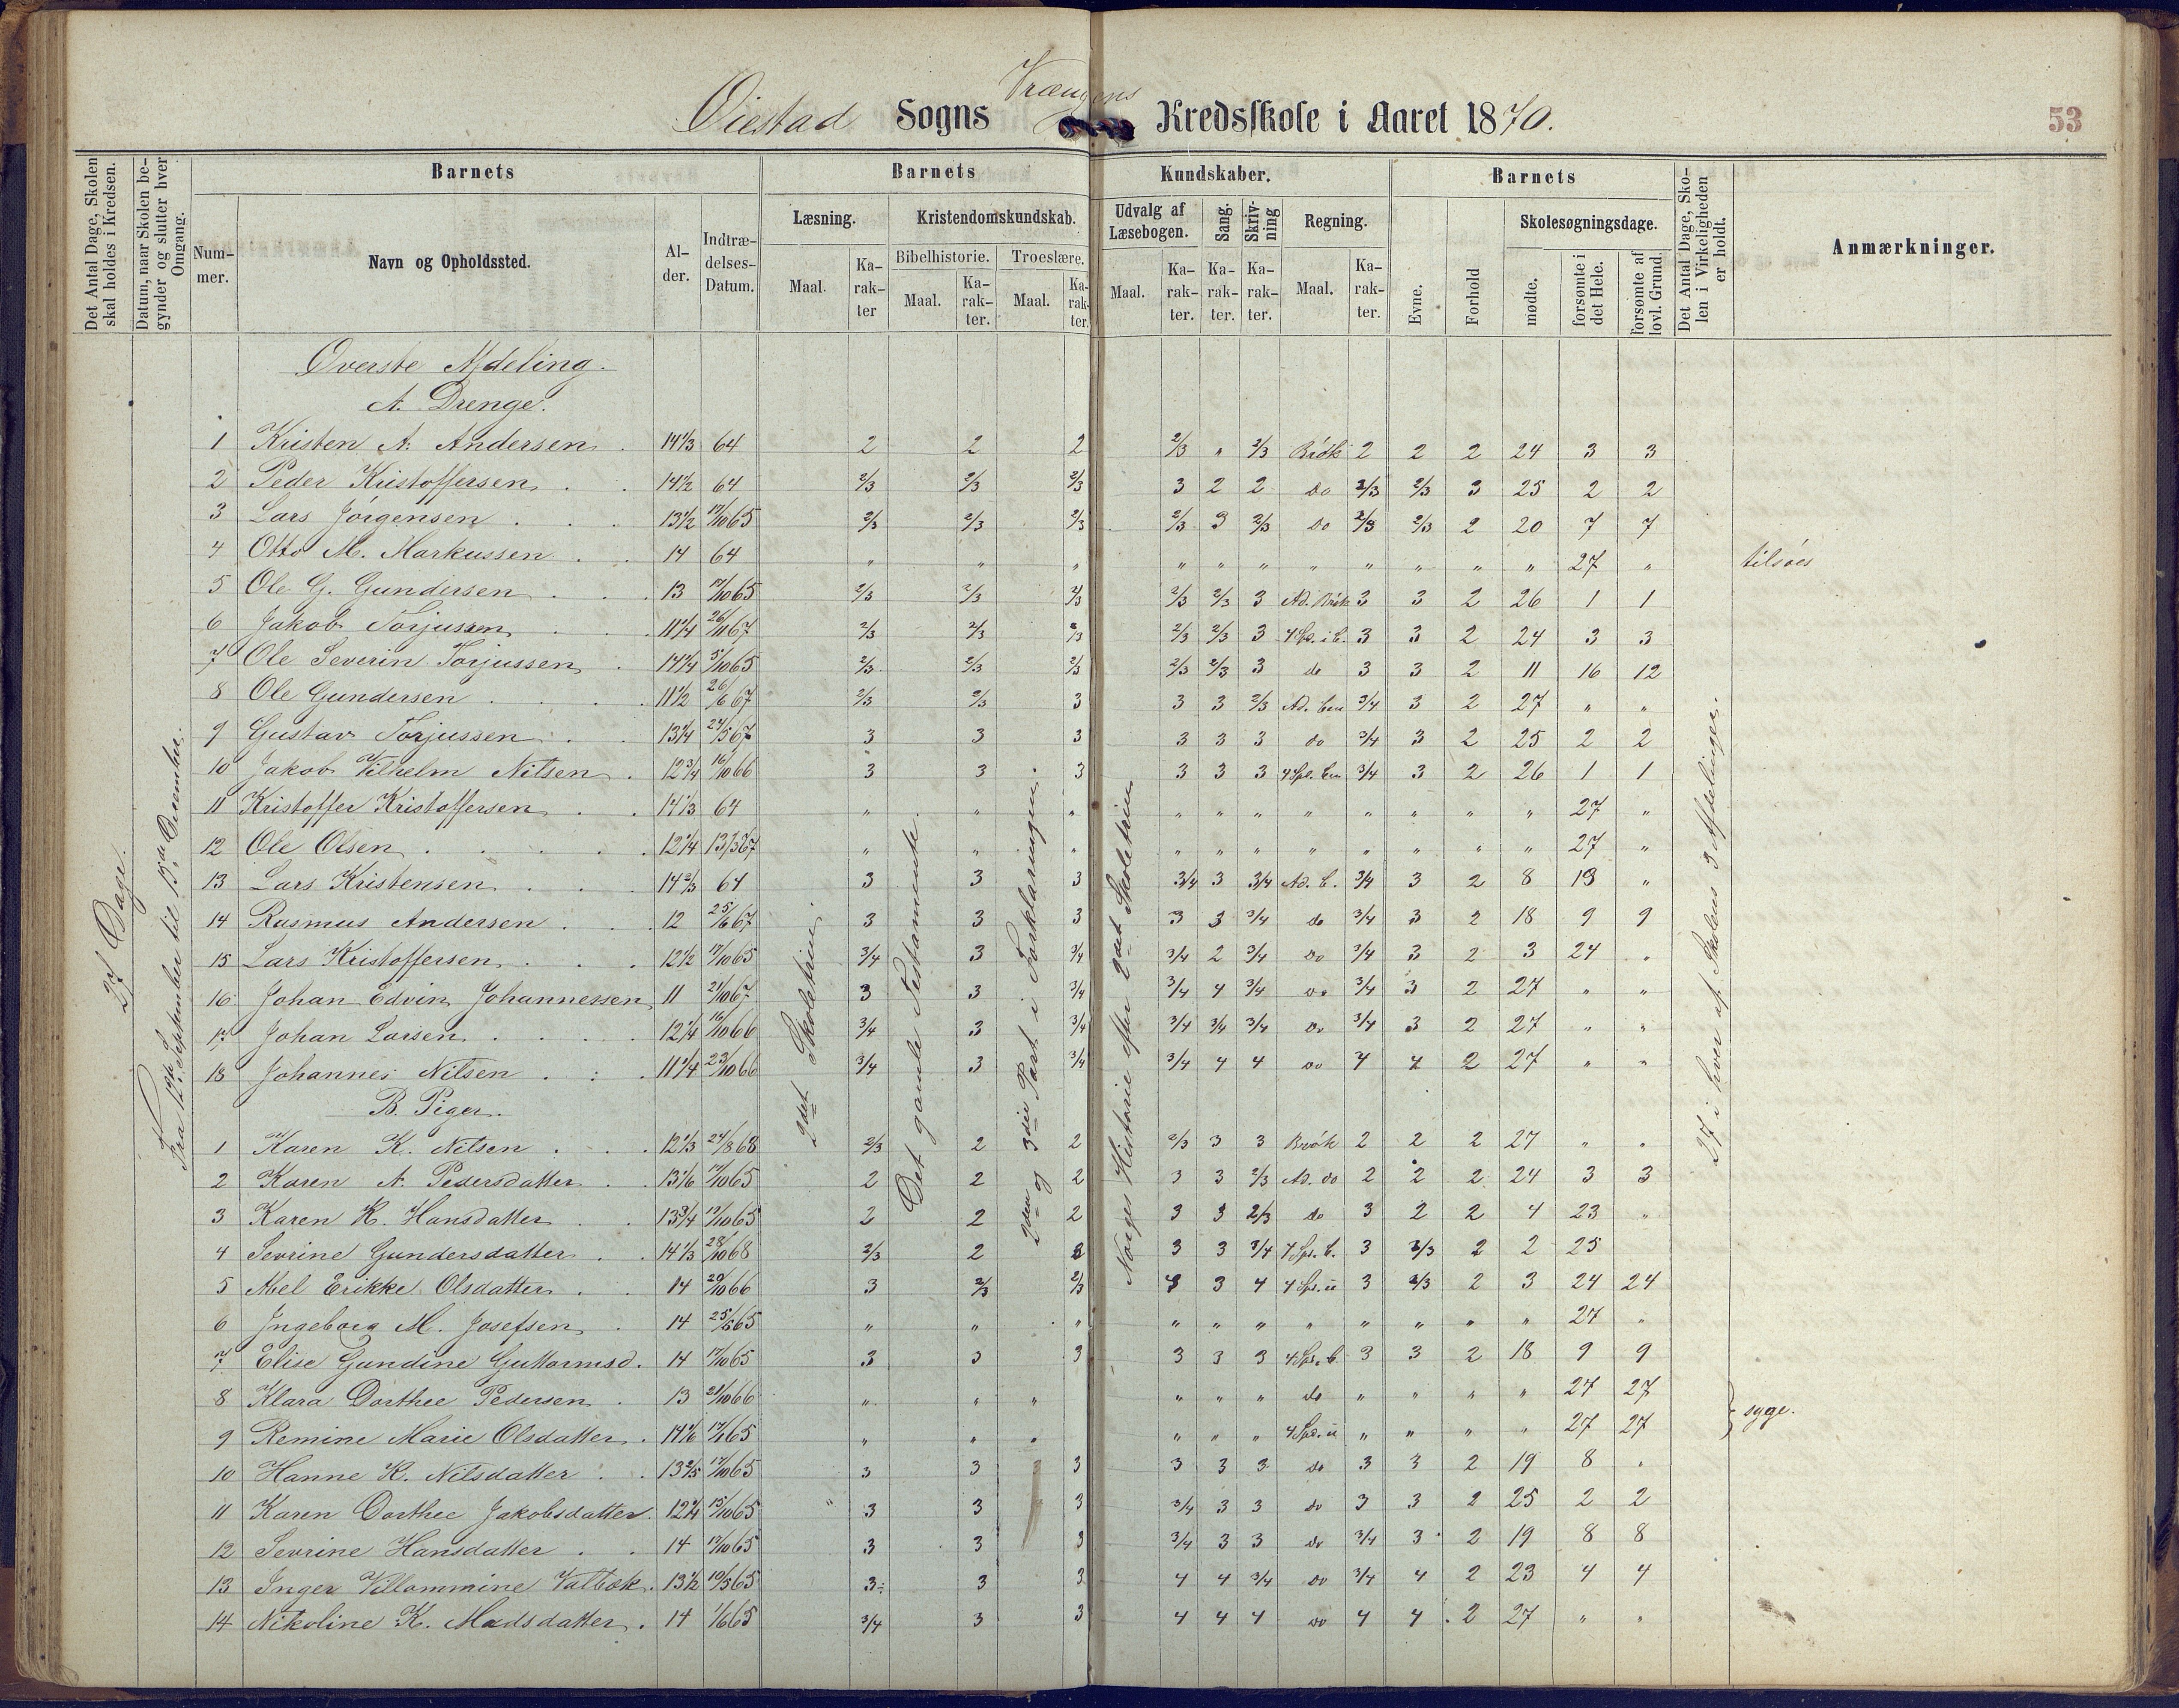 Øiestad Sogns Vrængens Kredsskole i Aaret 1870.
53
Det Antal Dage, Skolen skal holdes i Kredsen.
Datum, naar Skolen begynder og slutter hver Omgang.
Barnets
Barnets
Kundskaber.
Barnets
Det Antal Dage, Skolen i Virkeligheden er holdt.
Anmærkninger.
Nummer.
Navn og Opholdssted.
Alder.
Indtrædelses-Datum.
Læsning.
Kristendomskundskab.
Udvalg af Læsebogen.
Sang.
Skrivning
Regning.
Evne.
Forhold
Skolesøgningsdage.
Bibelhistorie.
Troeslære.
Maal.
Karakter
Maal.
Karakter.
Maal.
Karakter.
Maal.
Karakter.
Karakter.
Karakter.
Maal.
Karakter.
mødte.
forsømte i det Hele.
forsømte af lovl. Grund.
27 Dage.
Fra 12te September til 13de December.
2det Skoletrin.
Det gamle Testamente.
2den og 3die Part i Forklaringen.
Norges Historie efter 2det Skoletrin
27 i hver af Skolens 3 Afdelinger.
Øverste Afdeling.
A. Drenge.
1 Kristen A. Andersen 14 1/3 64 2 2 2 2/3 " 2/3 Brök 2 2 2 24 3 3
2 Peder Kristoffersen 14 1/2 64 2/3 2/3 2/3 3 2 2 do 2/3 2/3 3 25 2 2
3 Lars Jörgensen 13 1/2 17/10 65 2/3 2/3 2/3 2/3 3 2/3 do 2/3 2/3 2 20 7 7
4 Otto M. Markussen 14 64 " " " " " " " " " " " 27 " tilsøes
5 Ole G. Gundersen 13 17/10 65 2/3 2/3 2/3 2/3 2/3 3 Ad. Brök 3 3 2 26 1 1
6 Jakob Torjussen 11 1/4 26/11 67 2/3 2/3 2/3 2/3 2/3 3 4 Sp. i B. 3 3 2 24 3 3
7 Ole Severin Torjussen 14 1/4 5/10 65 2/3 2/3 2/3 2/3 2/3 3 do 3 3 2 11 16 12
8 Ole Gundersen 11 1/2 26/6 67 2/3 2/3 3 3 3 2/3 Ad. ben 3/4 3 2 27 " "
9 Gustav Torjussen 13 1/4 24/5 67 3 3 3 3 3 3 do 3/4 3 2 25 2 2
10 Jakob Vilhelm Nilsen 12 3/4 16/10 66 3 3 3 3 3 3 4 Spe. ben 3/4 3 2 26 1 1
11 Kristoffer Kristoffersen 14 1/3 64 " " " " " " " " " " " 27 "
12 Ole Olsen 12 1/4 13/3 67 " " " " " " " " " " " 27 "
13 Lars Kristensen 14 2/3 64 3 3 3 3/4 3 3/4 Ad. b. 3/4 3 2 8 19 "
14 Rasmus Andersen 12 25/6 67 3 3 3 3 3 3/4 do 3/4 3 2 18 9 9
15 Lars Kristoffersen 12 1/2 17/10 65 3/4 3 3/4 3/4 2 3/4 do 3/4 3 2 3 24 "
16 Johan Edvin Johannessen 11 21/10 67 3 3 3/4 3/4 4 3/4 do 3/4 3 2 27 " "
17 Johan Larsen 12 1/4 16/10 66 3/4 3 3/4 3/4 3/4 3/4 do 3/4 3 2 27 " "
18 Johannes Nilsen 11 1/4 23/10 66 3/4 3 3/4 3/4 4 4 do 4 4 2 27 " "
B. Piger.
1 Karen K. Nilsen 12 1/3 24/8 68 2/3 2 2 2/3 3 3 Brök 2 2 2 27 " "
2 Karen A. Pedersdatter 13 1/6 17/10 65 2 2 2 3 3 2/3 Ad. do 2 2 2 24 3 3
3 Karen K. Hansdatter 13 3/4 17/10 65 2 2 2 3 3 2/3 do 3 2 2 4 23 "
4 Sevrine Gundersdatter 14 1/3 28/10 68 2/3 2 2 3 3 3/4 4 Sps. b. 3 2/3 2 2 25
5 Abel Erikke Olsdatter 14 20/10 66 3 2/3 2/3 4 3 4 4 Sps. u 3 2/3 2 3 24 24
6 Ingeborg M. Josefsen 14 25/6 65 " " " " " " " " " " " 27 "
7 Elise Gundine Guttormsd. 14 17/10 65 3 3 3 3 3 3 4 Sps. b. 3 3 2 18 9 9
8 Klara Dorthee Pedersen 13 21/10 66 " " " " " " do " " " " 27 27
syge.
9 Remine Marie Olsdatter 14 1/6 17/1 65 " " " " " " 4 Spe. u " " " " 27 27
10 Hanne K. Nilsdatter 13 2/5 17/10 65 3 3 3 3 3 3 do 3 3 2 19 8 "
11 Karen Dorthee Jakobsdatter 12 1/4 15/10 65 " 3 3 3 3/4 3 3 do 3 3 2 25 2 2
12 Sevrine Hansdatter 14 17/10 65 3 3 3 3/4 3 3 do 3/4 3 2 19 8 8
13 Inger Villommine Valbok 13 1/2 10/5 65 3÷ 3 3 4 4 3/4 do 3/4 4 2 23 4 4
14 Nikoline K. Madsdatter 14 1/6 65 3/4 3 3 4 4 4 do 4 4 2 27 " "